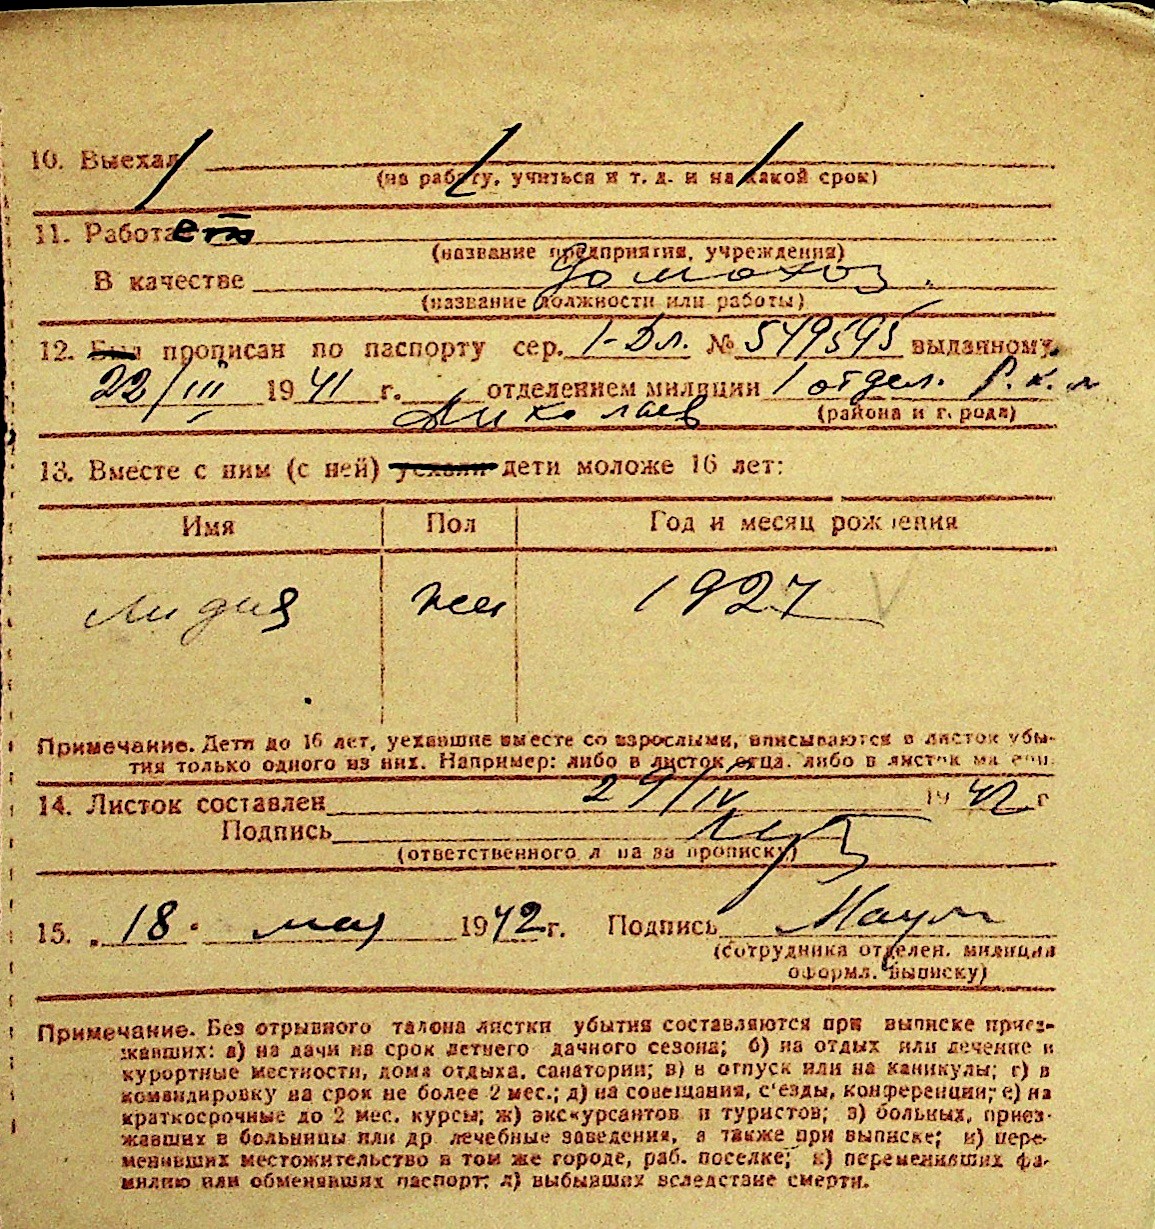 10. Выехал
(на работу, учиться и т. д. и на какой срок)
11. Работает
(название предприятия, учреждения)
В качестве домохоз.
(название должности или работы)
12. Был прописан по паспорту сер. I-Дл. № 549595 выданному
22/III 1941 г. отделением милиции 1 отдел. Р.к.м
Николаев (района и города)
13. Вместе с ним (с ней) уехали дети моложе 16 лет:
Имя Пол Год и месяц рождения
Лидия жен 1927
Примечание. Дети до 16 лет, уехавшие вместе со взрослыми, вписываются в листок убы-
тия только одного из них. Например: либо в листок отца, либо в листок матери.
14. Листок составлен 29/IV 1942 г
Подпись
(ответственного лица за прописку)
15. 18 мая 1942 г. Подпись
(сотрудника отделен. милиции
оформл. выписку)
Примечание. Без отрывного талона листки убытия составляются при выписке приез-
жавших: а) на дачи на срок летнего дачного сезона; б) на отдых или лечение в
курортные местности, дома отдыха, санатории; в) в отпуск или на каникулы; г) в
командировку на срок не более 2 мес.; д) на совещания, с'езды, конференции; е) на
краткосрочные до 2 мес. курсы; ж) экскурсантов и туристов; з) больных, приез-
жавших в больницы или др. лечебные заведения, а также при выписке; и) пере-
менивших местожительство в том же городе, раб. поселке; к) переменивших фа-
милию или обменявших паспорт; л) выбывших вследствие смерти.